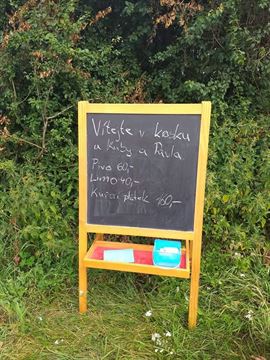 Vítejte v kosku
u Káby a Pavla
Pivo 60,-
Limo 40,-
Kuřecí plátek 160,-